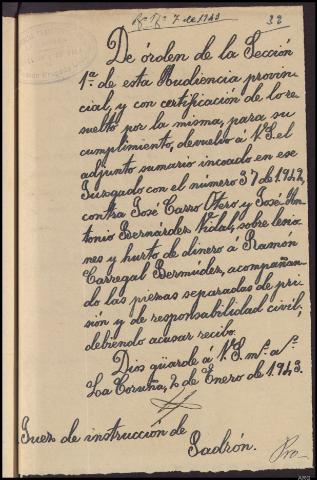 7 de 1943
32
De órden de la Sección
1ª. de esta Audiencia provin-
cial, y con certificación de lo re-
suelto por la misma, para su
cumplimiento, devuelvo á V.S. el
adjunto sumario incoado en ese
Juzgado con el número 37 de 1942,
contra José Carro Otero y José An-
tonio Bernárdez Vidal, sobre lesio-
nes y hurto de dinero á Ramón
Carregal Bermúdez, acompañan-
do las piezas separadas de pri-
sión y de responsabilidad civil,
debiendo acusar recibo.
Dios güarde á V.S. m.ª a.ª
La Coruña, 2 de Enero de 1.943.
Juez de instrucción de
Padrón.